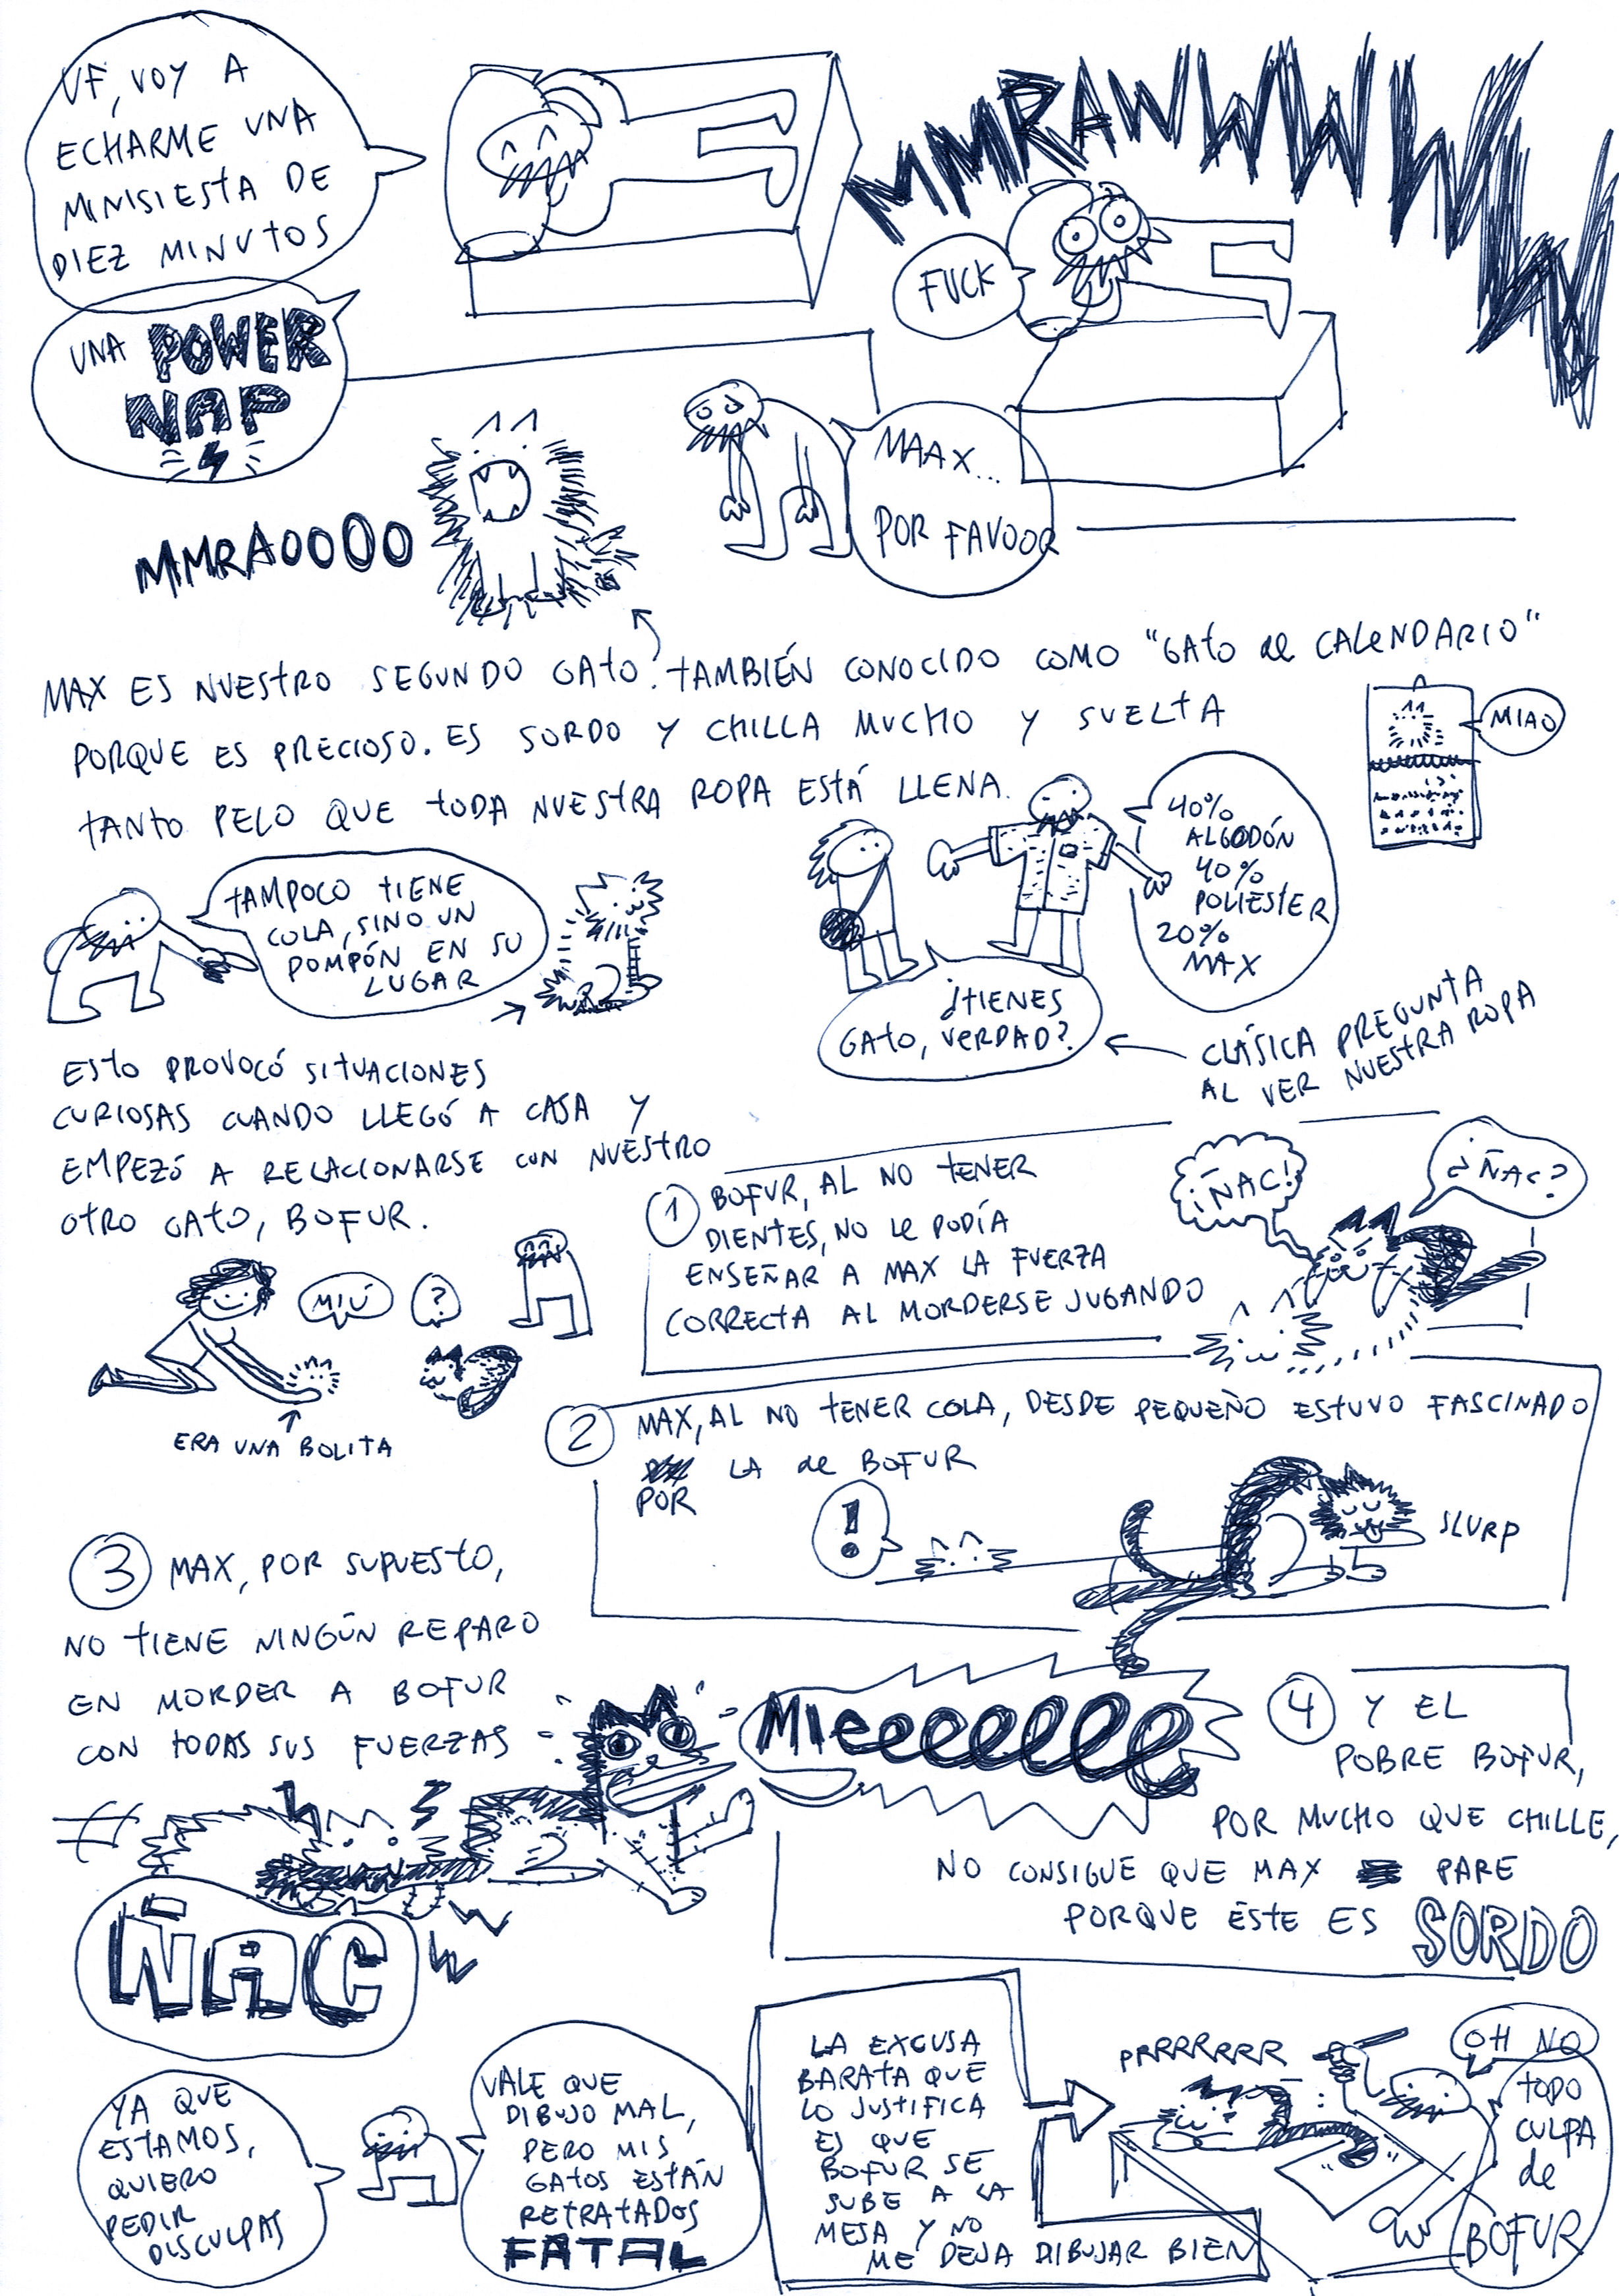 UF, VOY A
ECHARME UNA
MINISIESTA DE
DIEZ MINUTOS
UNA POWER
NAP
MMRAWWWWWW
FUCK
MMRAOOOO
MAAX...
POR FAVOOR
MAX ES NUESTRO SEGUNDO GATO. TAMBIÉN CONOCIDO COMO "GATO de CALENDARIO"
PORQUE ES PRECIOSO. ES SORDO Y CHILLA MUCHO Y SUELTA
TANTO PELO QUE TODA NUESTRA ROPA ESTÁ LLENA.
MIAO
TAMPOCO TIENE
COLA, SINO UN
POMPÓN EN SU
LUGAR
40%
ALGODÓN
40%
POLIESTER
20%
MAX
¿TIENES
GATO, VERDAD?
CLÁSICA PREGUNTA
AL VER NUESTRA ROPA
ESTO PROVOCÓ SITUACIONES
CURIOSAS CUANDO LLEGÓ A CASA Y
EMPEZÓ A RELACIONARSE CON NUESTRO
OTRO GATO, BOFUR.
MIÚ
?
ERA UNA BOLITA
1 BOFUR, AL NO TENER
DIENTES, NO LE PODÍA
ENSEÑAR A MAX LA FUERZA
CORRECTA AL MORDERSE JUGANDO
¡ÑAC!
¿ÑAC?
2 MAX, AL NO TENER COLA, DESDE PEQUEÑO ESTUVO FASCINADO
POR LA de BOFUR
!
SLURP
3 MAX, POR SUPUESTO,
NO TIENE NINGÚN REPARO
EN MORDER A BOFUR
CON TODAS SUS FUERZAS
MIeeeeeeee
ÑAC
4 Y EL
POBRE BOFUR,
POR MUCHO QUE CHILLE,
NO CONSIGUE QUE MAX PARE
PORQUE ÉSTE ES SORDO
YA QUE
ESTAMOS,
QUIERO
PEDIR
DISCULPAS
VALE QUE
DIBUJO MAL,
PERO MIS
GATOS ESTÁN
RETRATADOS
FATAL
LA EXCUSA
BARATA QUE
LO JUSTIFICA
ES QUE
BOFUR SE
SUBE A LA
MESA Y NO
ME DEJA DIBUJAR BIEN
PRRRRRRR
OH NO
TODO
CULPA
de
BOFUR